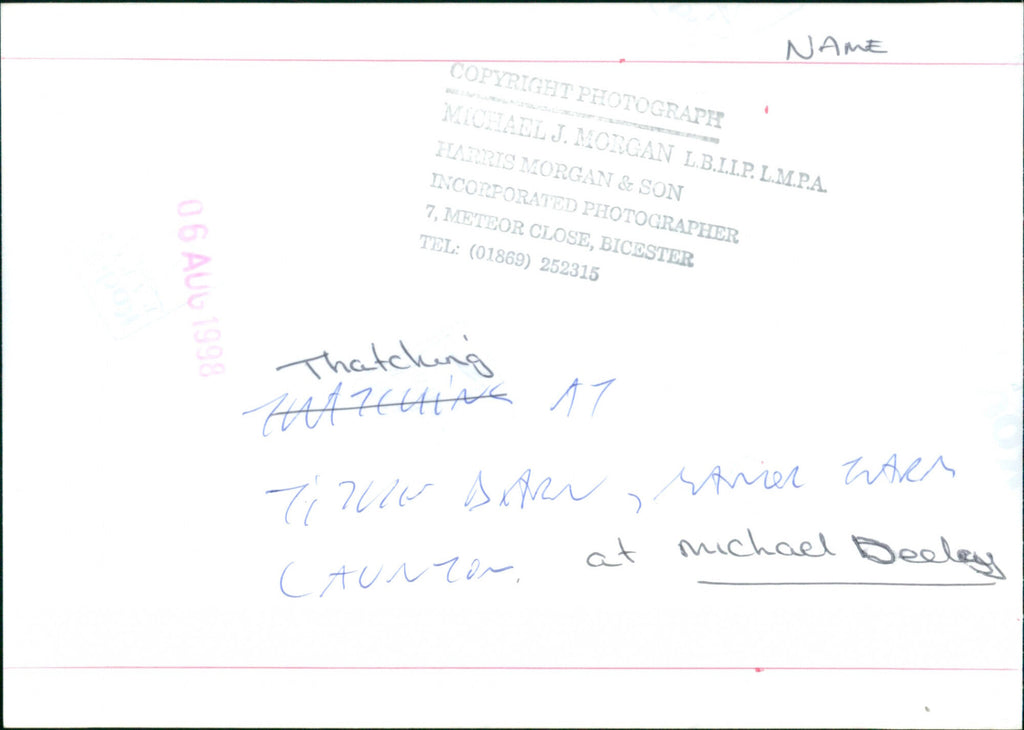 NAME
COPYRIGHT PHOTOGRAPH
MICHAEL J. MORGAN L.B.I.I.P. L.M.P.A.
HARRIS MORGAN & SON
INCORPORATED PHOTOGRAPHER
7, METEOR CLOSE, BICESTER
TEL: (01869) 252315
06 AUG 1998
Thatching
THATCHING AT
TITHE BARN, MANOR FARM
LAUNTON. at Michael Deeley